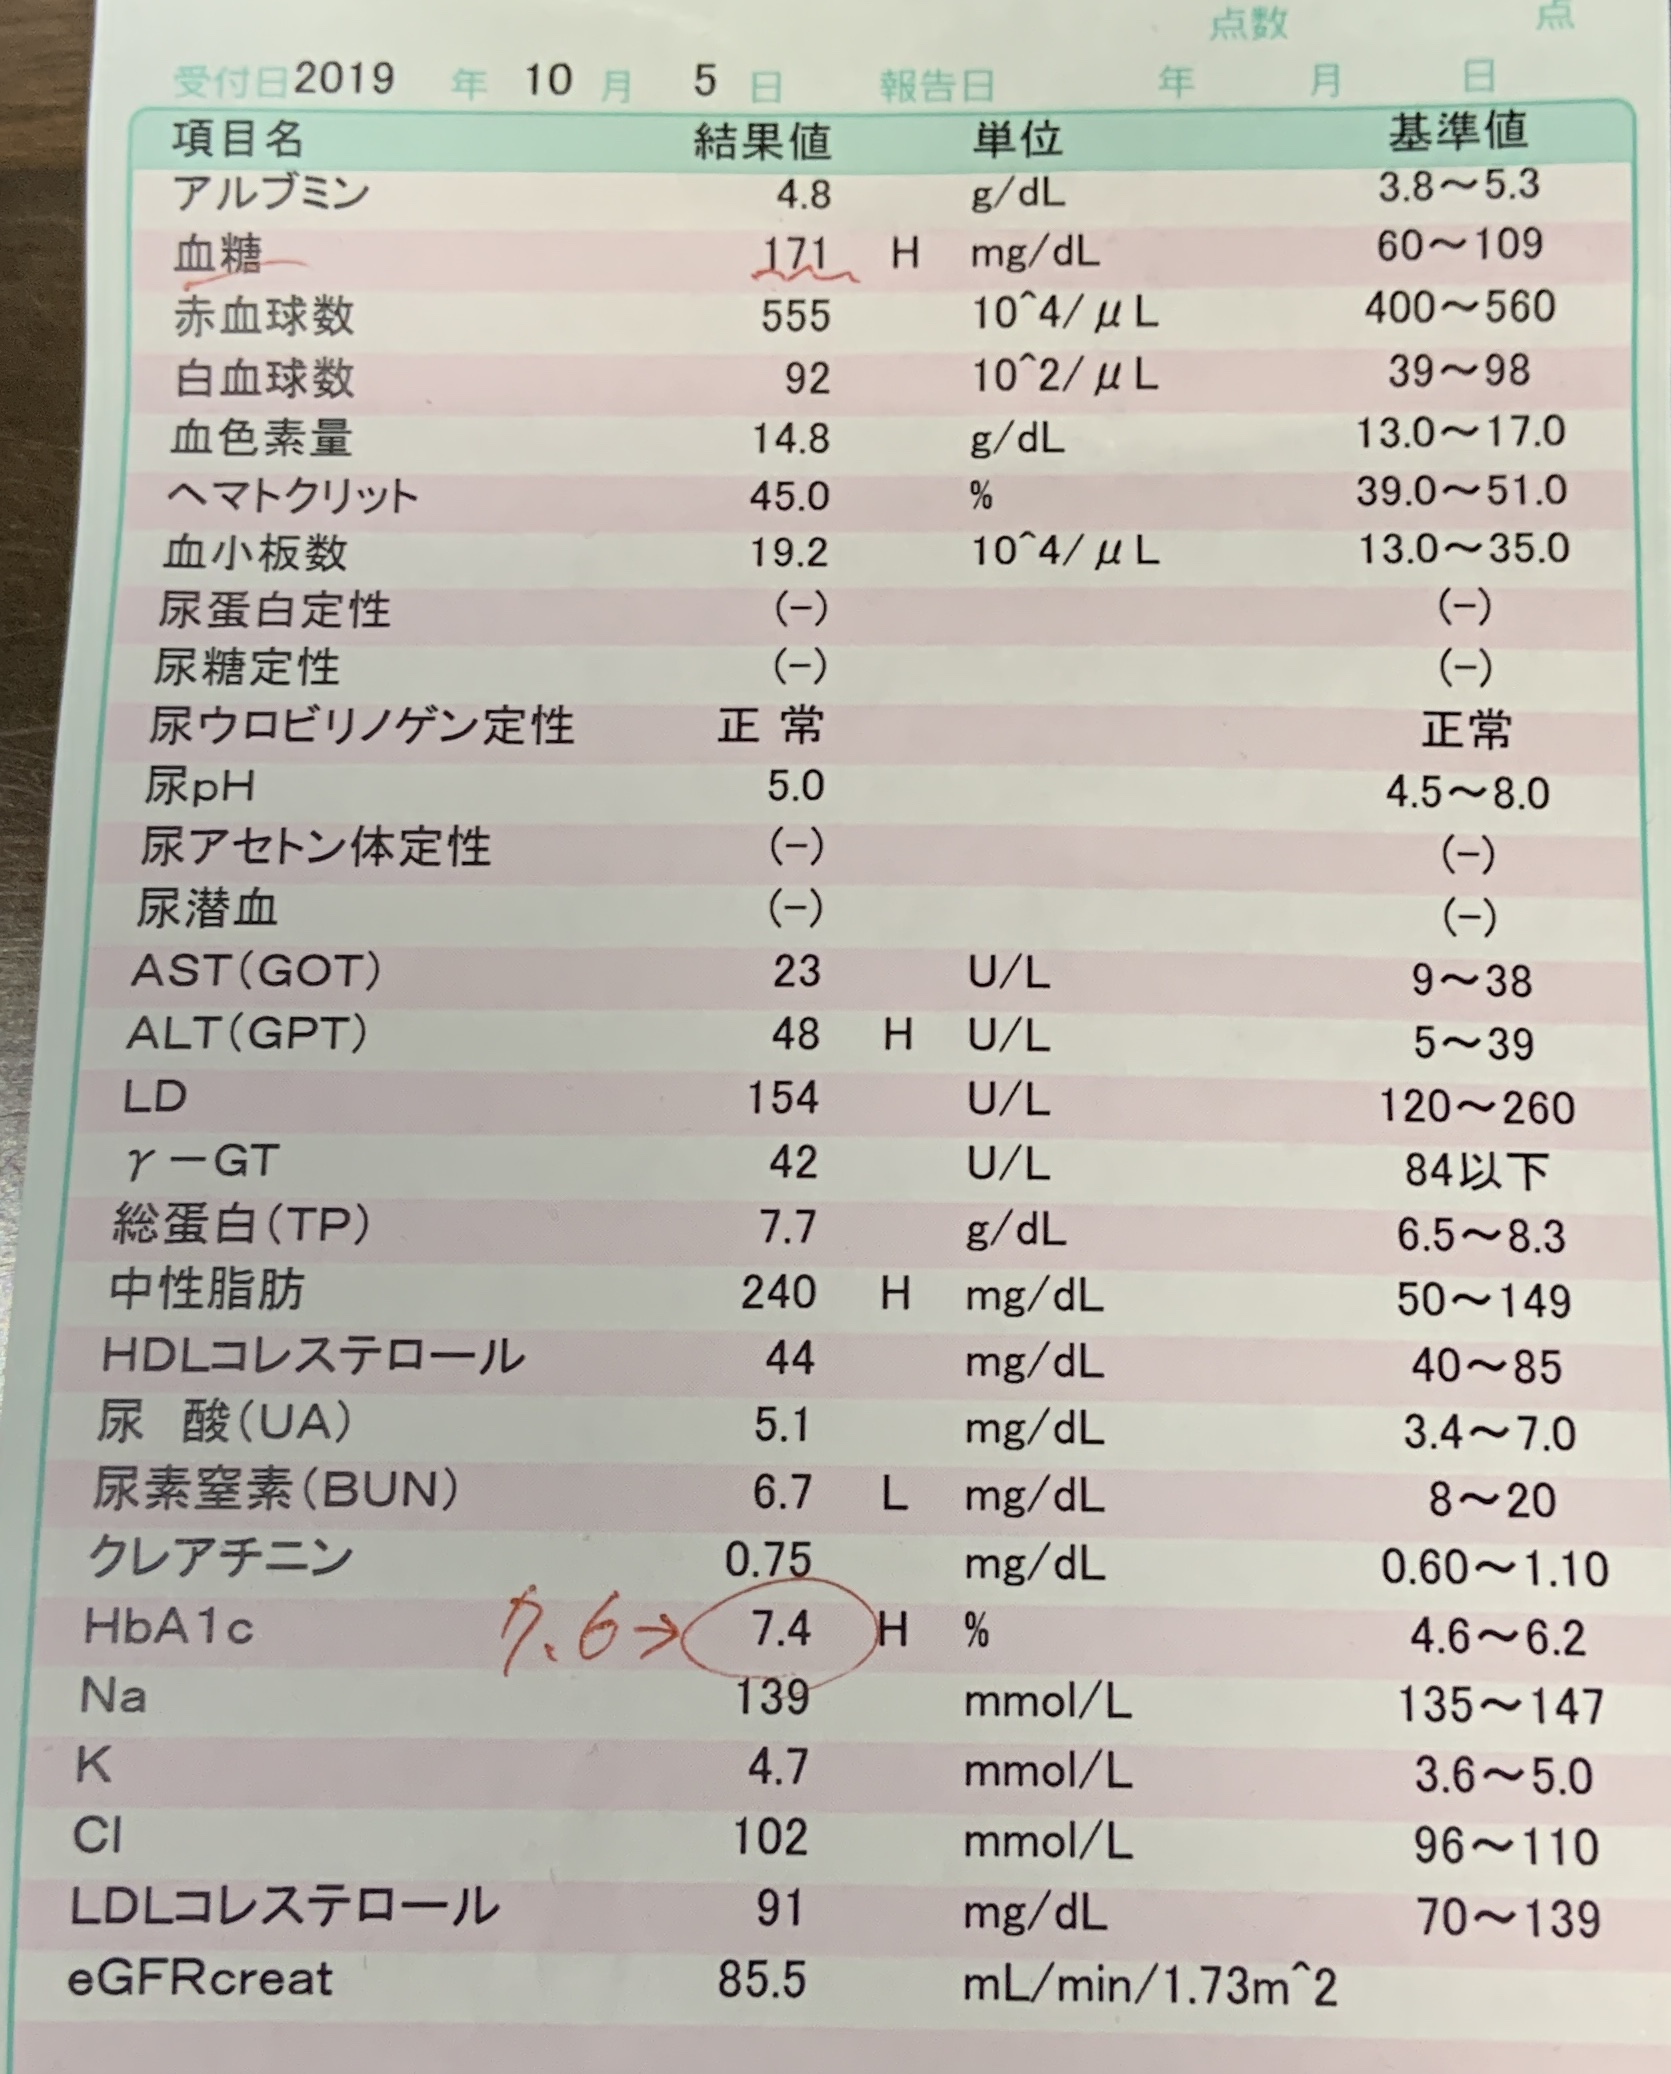 点数 点
受付日 2019 年 10 月 5 日 報告日 年 月 日
項目名 結果値 単位 基準値
アルブミン 4.8 g/dL 3.8～5.3
血糖 171 H mg/dL 60～109
赤血球数 555 10^4/μL 400～560
白血球数 92 10^2/μL 39～98
血色素量 14.8 g/dL 13.0～17.0
ヘマトクリット 45.0 % 39.0～51.0
血小板数 19.2 10^4/μL 13.0～35.0
尿蛋白定性 (-) (-)
尿糖定性 (-) (-)
尿ウロビリノゲン定性 正常 正常
尿pH 5.0 4.5～8.0
尿アセトン体定性 (-) (-)
尿潜血 (-) (-)
AST(GOT) 23 U/L 9～38
ALT(GPT) 48 H U/L 5～39
LD 154 U/L 120～260
γ－GT 42 U/L 84以下
総蛋白(TP) 7.7 g/dL 6.5～8.3
中性脂肪 240 H mg/dL 50～149
HDLコレステロール 44 mg/dL 40～85
尿　酸(UA) 5.1 mg/dL 3.4～7.0
尿素窒素(BUN) 6.7 L mg/dL 8～20
クレアチニン 0.75 mg/dL 0.60～1.10
HbA1c 7.6→ 7.4 H % 4.6～6.2
Na 139 mmol/L 135～147
K 4.7 mmol/L 3.6～5.0
Cl 102 mmol/L 96～110
LDLコレステロール 91 mg/dL 70～139
eGFRcreat 85.5 mL/min/1.73m^2